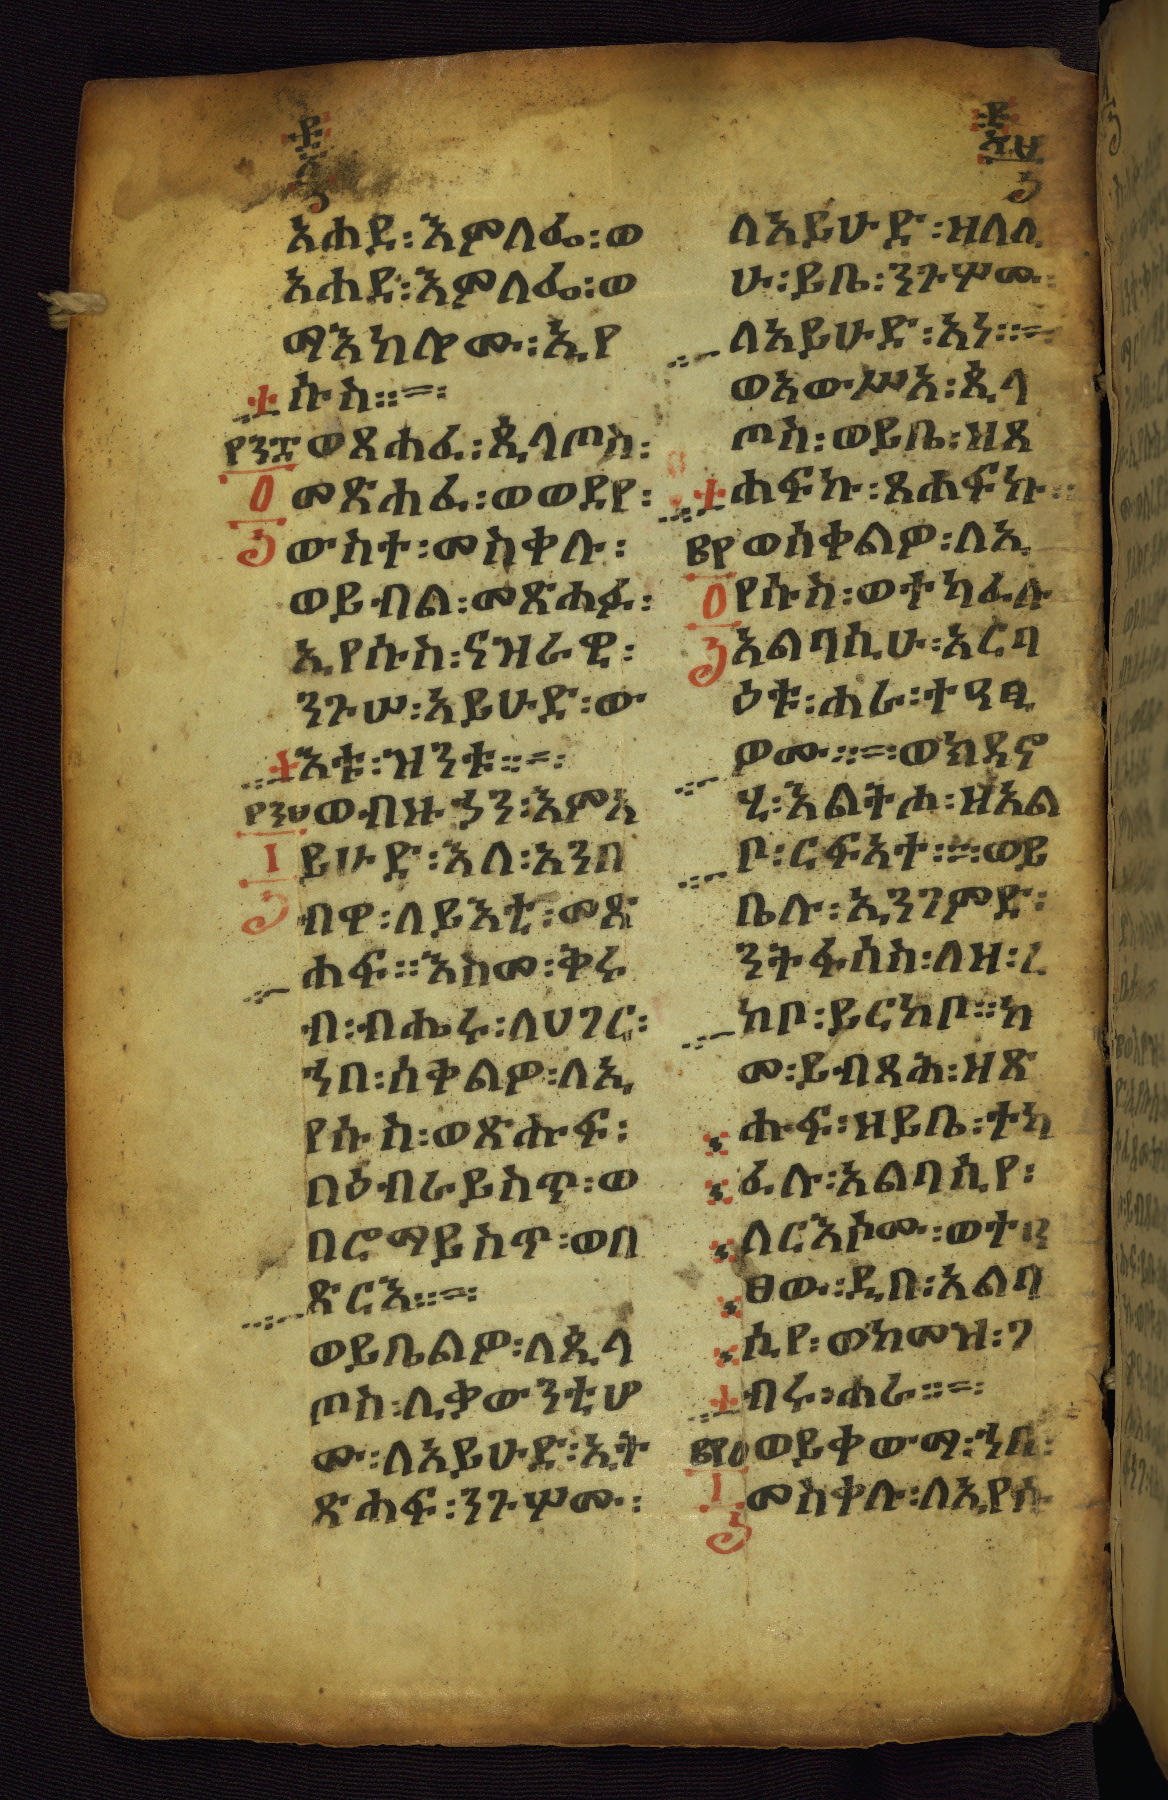 አሐደ፡እምለፌ፡ወ
አሐደ፡እምለፌ፡ወ
ማእከሎሙ፡ኢየ
ሱስ።=፡
ወጸሐፈ፡ጲላጦስ፡
መጽሐፈ፡ወወደየ፡
ውስተ፡መስቀሉ፡
ወይብል፡መጽሐፉ፡
ኢየሱስ፡ናዝራዊ፡
ንጉሠ፡አይሁድ፡ው
እቱ፡ዝንቱ።=፡
ወብዙኃን፡እምአ
ይሁድ፡እለ፡አንበ
ብዋ፡ለይእቲ፡መጽ
ሐፍ።እስመ፡ቅሩ
ብ፡ብሔሩ፡ለሀገር፡
ኀበ፡ሰቀልዎ፡ለኢ
የሱስ፡ወጽሑፍ፡
በዕብራይስጥ፡ወ
በሮማይስጥ፡ወበ
ጽርእ።=፡
ወይቤልዎ፡ለጲላ
ጦስ፡ሊቃውንቲሆ
ሙ፡ለአይሁድ፡ኢት
ጽሐፍ፡ንጉሦሙ፡
ለአይሁድ፡ዘለሊ
ሁ፡ይቤ፡ንጉሦሙ፡
ለአይሁድ፡አነ።=
ወአውሥአ፡ጲላ
ጦስ፡ወይቤ፡ዘጸ
ሐፍኩ፡ጸሐፍኩ።
ወሰቀልዎ፡ለኢ
የሱስ፡ወተካፈሉ
አልባሲሁ፡አርባ
ዕቱ፡ሐራ፡ተዓፂ
ዎሙ።=፡ወክዳኖ
ሂ፡እልትሐ፡ዘአል
ቦ፡ርፍአተ።=፡ወይ
ቤሉ፡ኢንገምድ፡
ንትፋሰስ፡ለዘ፡ረ
ከቦ፡ይርከቦ።ከ
መ፡ይብጻሕ፡ዘጽ
ሑፍ፡ዘይቤ፡ተካ
ፈሉ፡አልባሲየ፡
ለርእሶሙ፡ወተዓ
ፀው፡ዲበ፡አልባ
ሲየ፡ወከመዝ፡ገ
ብሩ፡ሐራ።=፡
ወይቀውማ፡ኀበ፡
መስቀሉ፡ለኢየሱ